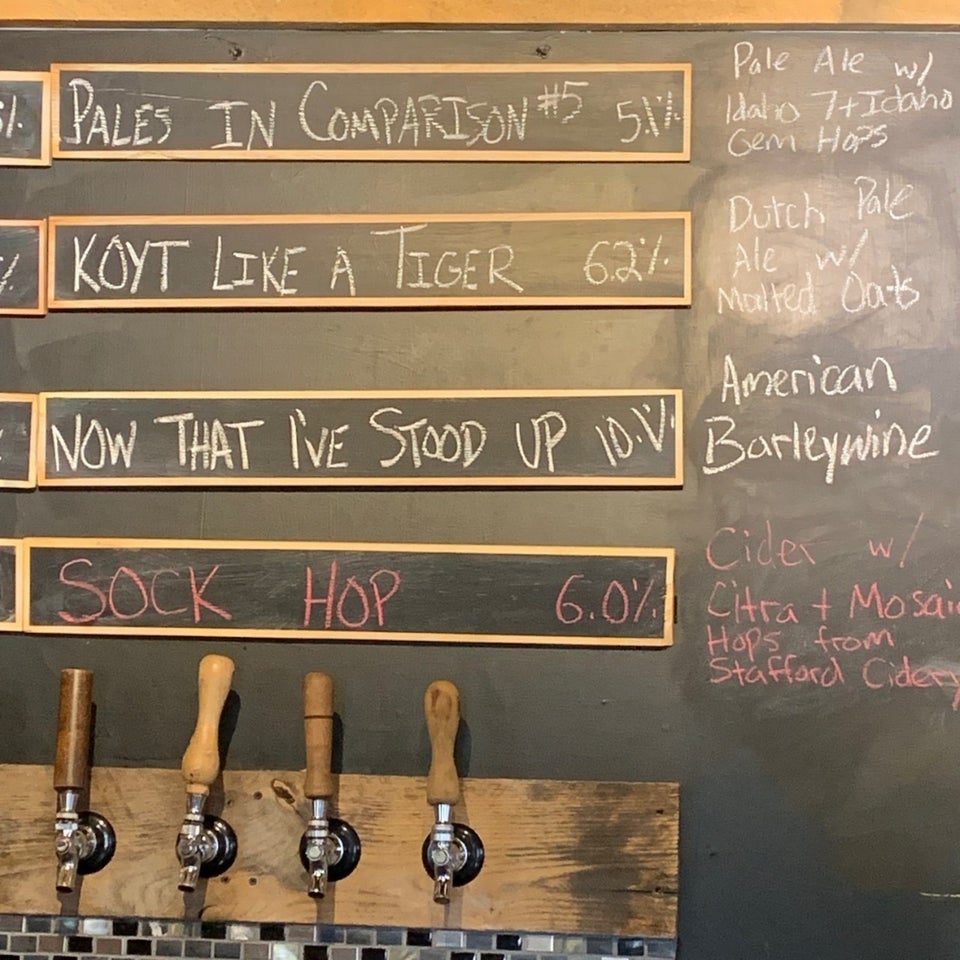 PALES IN COMPARISON #5 5.1%
Pale Ale w/
Idaho 7 + Idaho
Gem Hops
KOYT LIKE A TIGER 6.2%
Dutch Pale
Ale w/
Malted Oats
NOW THAT I'VE STOOD UP 10.1%
American
Barleywine
SOCK HOP 6.0%
Cider w/
Citra + Mosaic
Hops from
Stafford Cidery